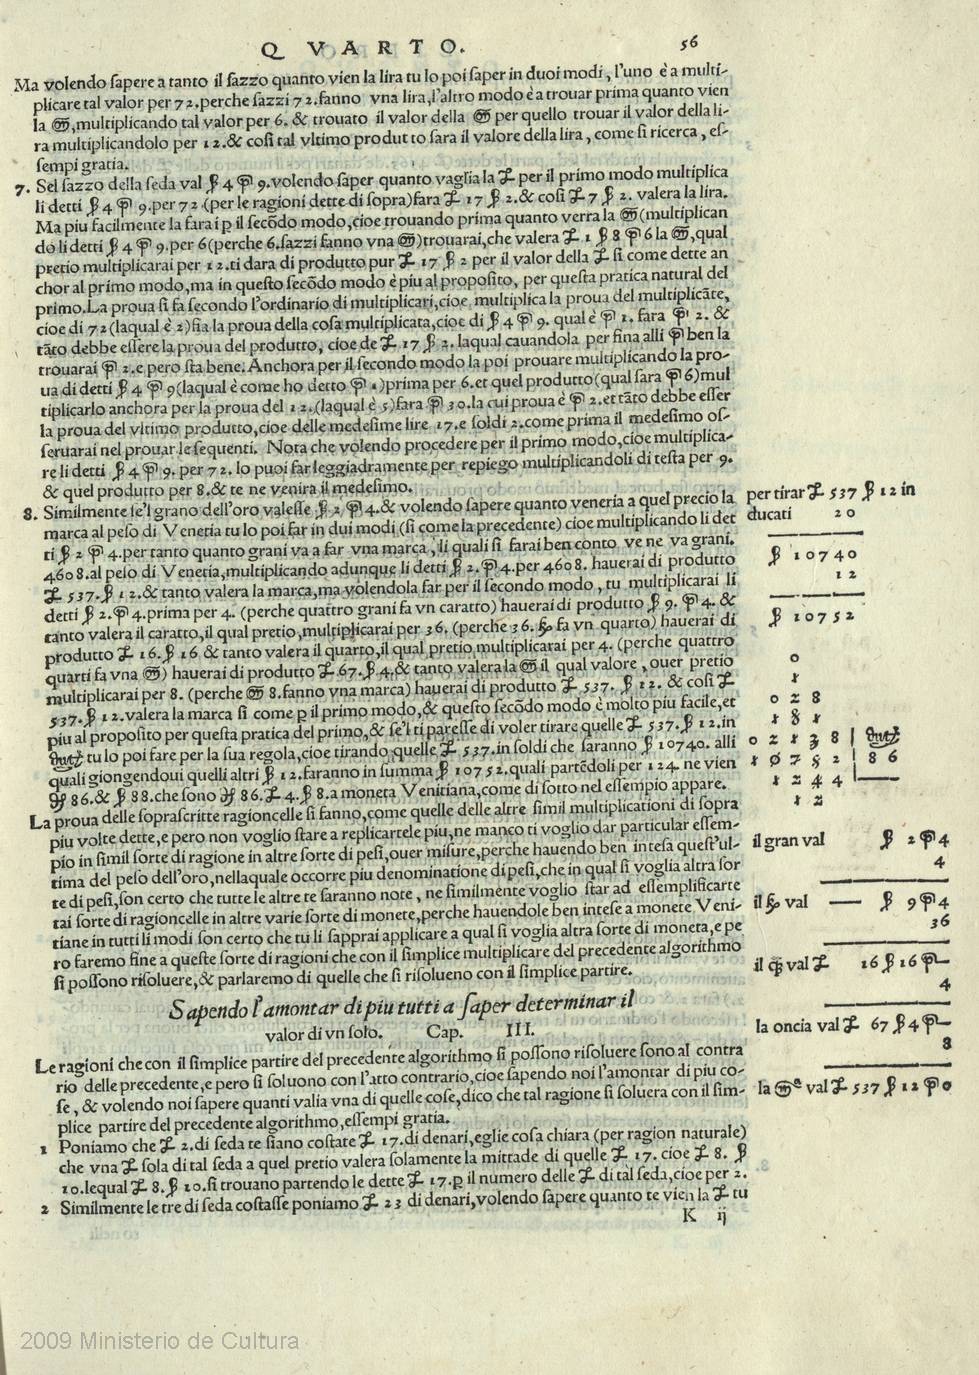 Q VARTO. 56
Ma volendo ſapere a tanto il ſazzo quanto vien la lira tu lo poi ſaper in duoi modi, l'uno è a multi-
plicare tal valor per 72. perche ſazzi 72. fanno vna lira, l'altro modo è a trouar prima quanto vien
la ,multiplicando tal valor per 6. & trouato il valor della per quello trouar il valor della li-
ra multiplicandolo per 12. & coſi tal vltimo produtto ſara il valore della lira, come ſi ricerca, eſ-
ſempi gratia.
7. Sel ſazzo della ſeda val ꝑ 4 9. volendo ſaper quanto vaglia la £ per il primo modo multiplica
li detti ꝑ 4 9. per 72 (per le ragioni dette di ſopra) fara £ 17 ꝑ 2. & coſi £ 7 ꝑ 2. valera la lira.
Ma piu facilmente la farai p il ſecōdo modo, cioe trouando prima quanto verra la (multiplican
do li detti ꝑ 4 9. per 6 (perche 6. ſazzi fanno vna ) trouarai, che valera £ 1 ꝑ 8 6 la , qual
pretio multiplicarai per 12. ti dara di produtto pur £ 17 ꝑ 2 per il valor della £ ſi come dette an
chor al primo modo, ma in queſto ſecōdo modo è piu al propoſito, per queſta pratica natural del
primo. La proua ſi fa ſecondo l'ordinario di multiplicari, cioe multiplica la proua del multiplicāte,
cioe di 72 (laqual è 2) ſia la proua della coſa multiplicata, cioe di ꝑ 4 9. qual è 1. fara 2. &
tāto debbe eſſere la proua del produtto, cioe de £ 17 ꝑ 2. laqual cauandola per fina alli ben la
trouarai 2. e pero ſta bene. Anchora per il ſecondo modo la poi prouare multiplicando la pro-
ua di detti ꝑ 4 9 (laqual è come ho detto 1) prima per 6. et quel produtto (qual ſara 6) mul
tiplicarlo anchora per la proua del 12. (laqual è 5) fara 30. la cui proua è 2. et tāto debbe eſſer
la proua del vltimo produtto, cioe delle medeſime lire 17. e ſoldi 2. come prima il medeſimo oſ-
ſeruarai nel prouar le ſequenti. Nota che volendo procedere per il primo modo, cioe multiplica-
re li detti ꝑ 4 9. per 72. lo puoi far leggiadramente per repiego multiplicandoli di teſta per 9.
& quel produtto per 8. & te ne venira il medeſimo.
8. Similmente ſe'l grano dell'oro valeſſe ꝑ 2 4. & volendo ſapere quanto veneria a quel precio la
marca al peſo di Venetia tu lo poi far in dui modi (ſi come la precedente) cioe multiplicando li det
ti ꝑ 2 4. per tanto quanto grani va a far vna marca, li quali ſi farai ben conto ve ne va grani.
4608. al peſo di Venetia, multiplicando adunque li detti ꝑ 2. 4. per 4608. hauerai di produtto
£ 537. ꝑ 12. & tanto valera la marca, ma volendola far per il ſecondo modo, tu multiplicarai li
detti ꝑ 2. 4. prima per 4. (perche quattro grani fa vn caratto) hauerai di produtto ꝑ 9. 4. &
tanto valera il caratto, il qual pretio, multiplicarai per 36. (perche 36. fa vn quarto) hauerai di
produtto £ 16. ꝑ 16. & tanto valera il quarto, il qual pretio multiplicarai per 4. (perche quattro
quarti fa vna ) hauerai di produtto £ 67. ꝑ 4. & tanto valera la il qual valore, ouer pretio
multiplicarai per 8. (perche 8. fanno vna marca) hauerai di produtto £ 537. ꝑ 12. & coſi £
537. ꝑ 12. valera la marca ſi come p il primo modo, & queſto ſecōdo modo è molto piu facile, et
piu al propoſito per queſta pratica del primo, & ſe'l ti pareſſe di voler tirare quelle £ 537. ꝑ 12. in
tu lo poi fare per la ſua regola, cioe tirando quelle £ 537. in ſoldi che ſaranno ꝑ 10740. alli
quali giongendoui quelli altri ꝑ 12. faranno in ſumma ꝑ 10752. quali partēdoli per 124. ne vien
86. & ꝑ 88. che ſono 86. £ 4. ꝑ 8. a moneta Venitiana, come di ſotto nel eſſempio appare.
La proua delle ſopraſcritte ragioncelle ſi fanno, come quelle delle altre ſimil multiplicationi di ſopra
piu volte dette, e pero non voglio ſtare a replicartele piu, ne manco ti voglio dar particular eſſem-
pio in ſimil ſorte di ragione in altre ſorte di peſi, ouer miſure, perche hauendo ben inteſa queſt'ul-
tima del peſo dell'oro, nellaquale occorre piu denominatione di peſi, che in qual ſi voglia altra ſor
te di peſi, ſon certo che tutte le altre te ſaranno note, ne ſimilmente voglio ſtar ad eſſemplificarte
tai ſorte di ragioncelle in altre varie ſorte di monete, perche hauendole ben inteſe a monete Veni-
tiane in tutti li modi ſon certo che tu li ſapprai applicare a qual ſi voglia altra ſorte di moneta, e pe
ro faremo fine a queſte ſorte di ragioni che con il ſimplice multiplicare del precedente algorithmo
ſi poſſono riſoluere, & parlaremo di quelle che ſi riſolueno con il ſimplice partire.
Sapendo l'amontar di piu tutti a ſaper determinar il
valor di vn ſolo. Cap. III.
Le ragioni che con il ſimplice partire del precedente algorithmo ſi poſſono riſoluere ſono al contra
rio delle precedente, e pero ſi ſoluono con l'atto contrario, cioe ſapendo noi l'amontar di piu co-
ſe, & volendo noi ſapere quanti valia vna di quelle coſe, dico che tal ragione ſi ſoluera con il ſim-
plice partire del precedente algorithmo, eſſempi gratia.
1 Poniamo che £ 2. di ſeda te ſiano coſtate £ 17. di denari, eglie coſa chiara (per ragion naturale)
che vna £ ſola di tal ſeda a quel pretio valera ſolamente la mittade di quelle £ 17. cioe £ 8. ꝑ
10. lequal £ 8. ꝑ 10. ſi trouano partendo le dette £ 17. p il numero delle £ di tal ſeda, cioe per 2.
2 Similmente le tre di ſeda coſtaſſe poniamo £ 23 di denari, volendo ſapere quanto te vien la £ tu
K ij
per tirar £ 537 ꝑ 12 in
ducati 20
ꝑ 10740
12
ꝑ 10752
0
1
0 2 8
1 8 1
0 2 1 3 8
1 0 7 5 2 | 8 6
1 2 4 4
1 2
il gran val ꝑ 2 4
4
il val — ꝑ 9 4
36
il val £ 16 ꝑ 16 —
4
la oncia val £ 67 ꝑ 4 —
8
la val £ 537 ꝑ 12 0
2009 Ministerio de Cultura